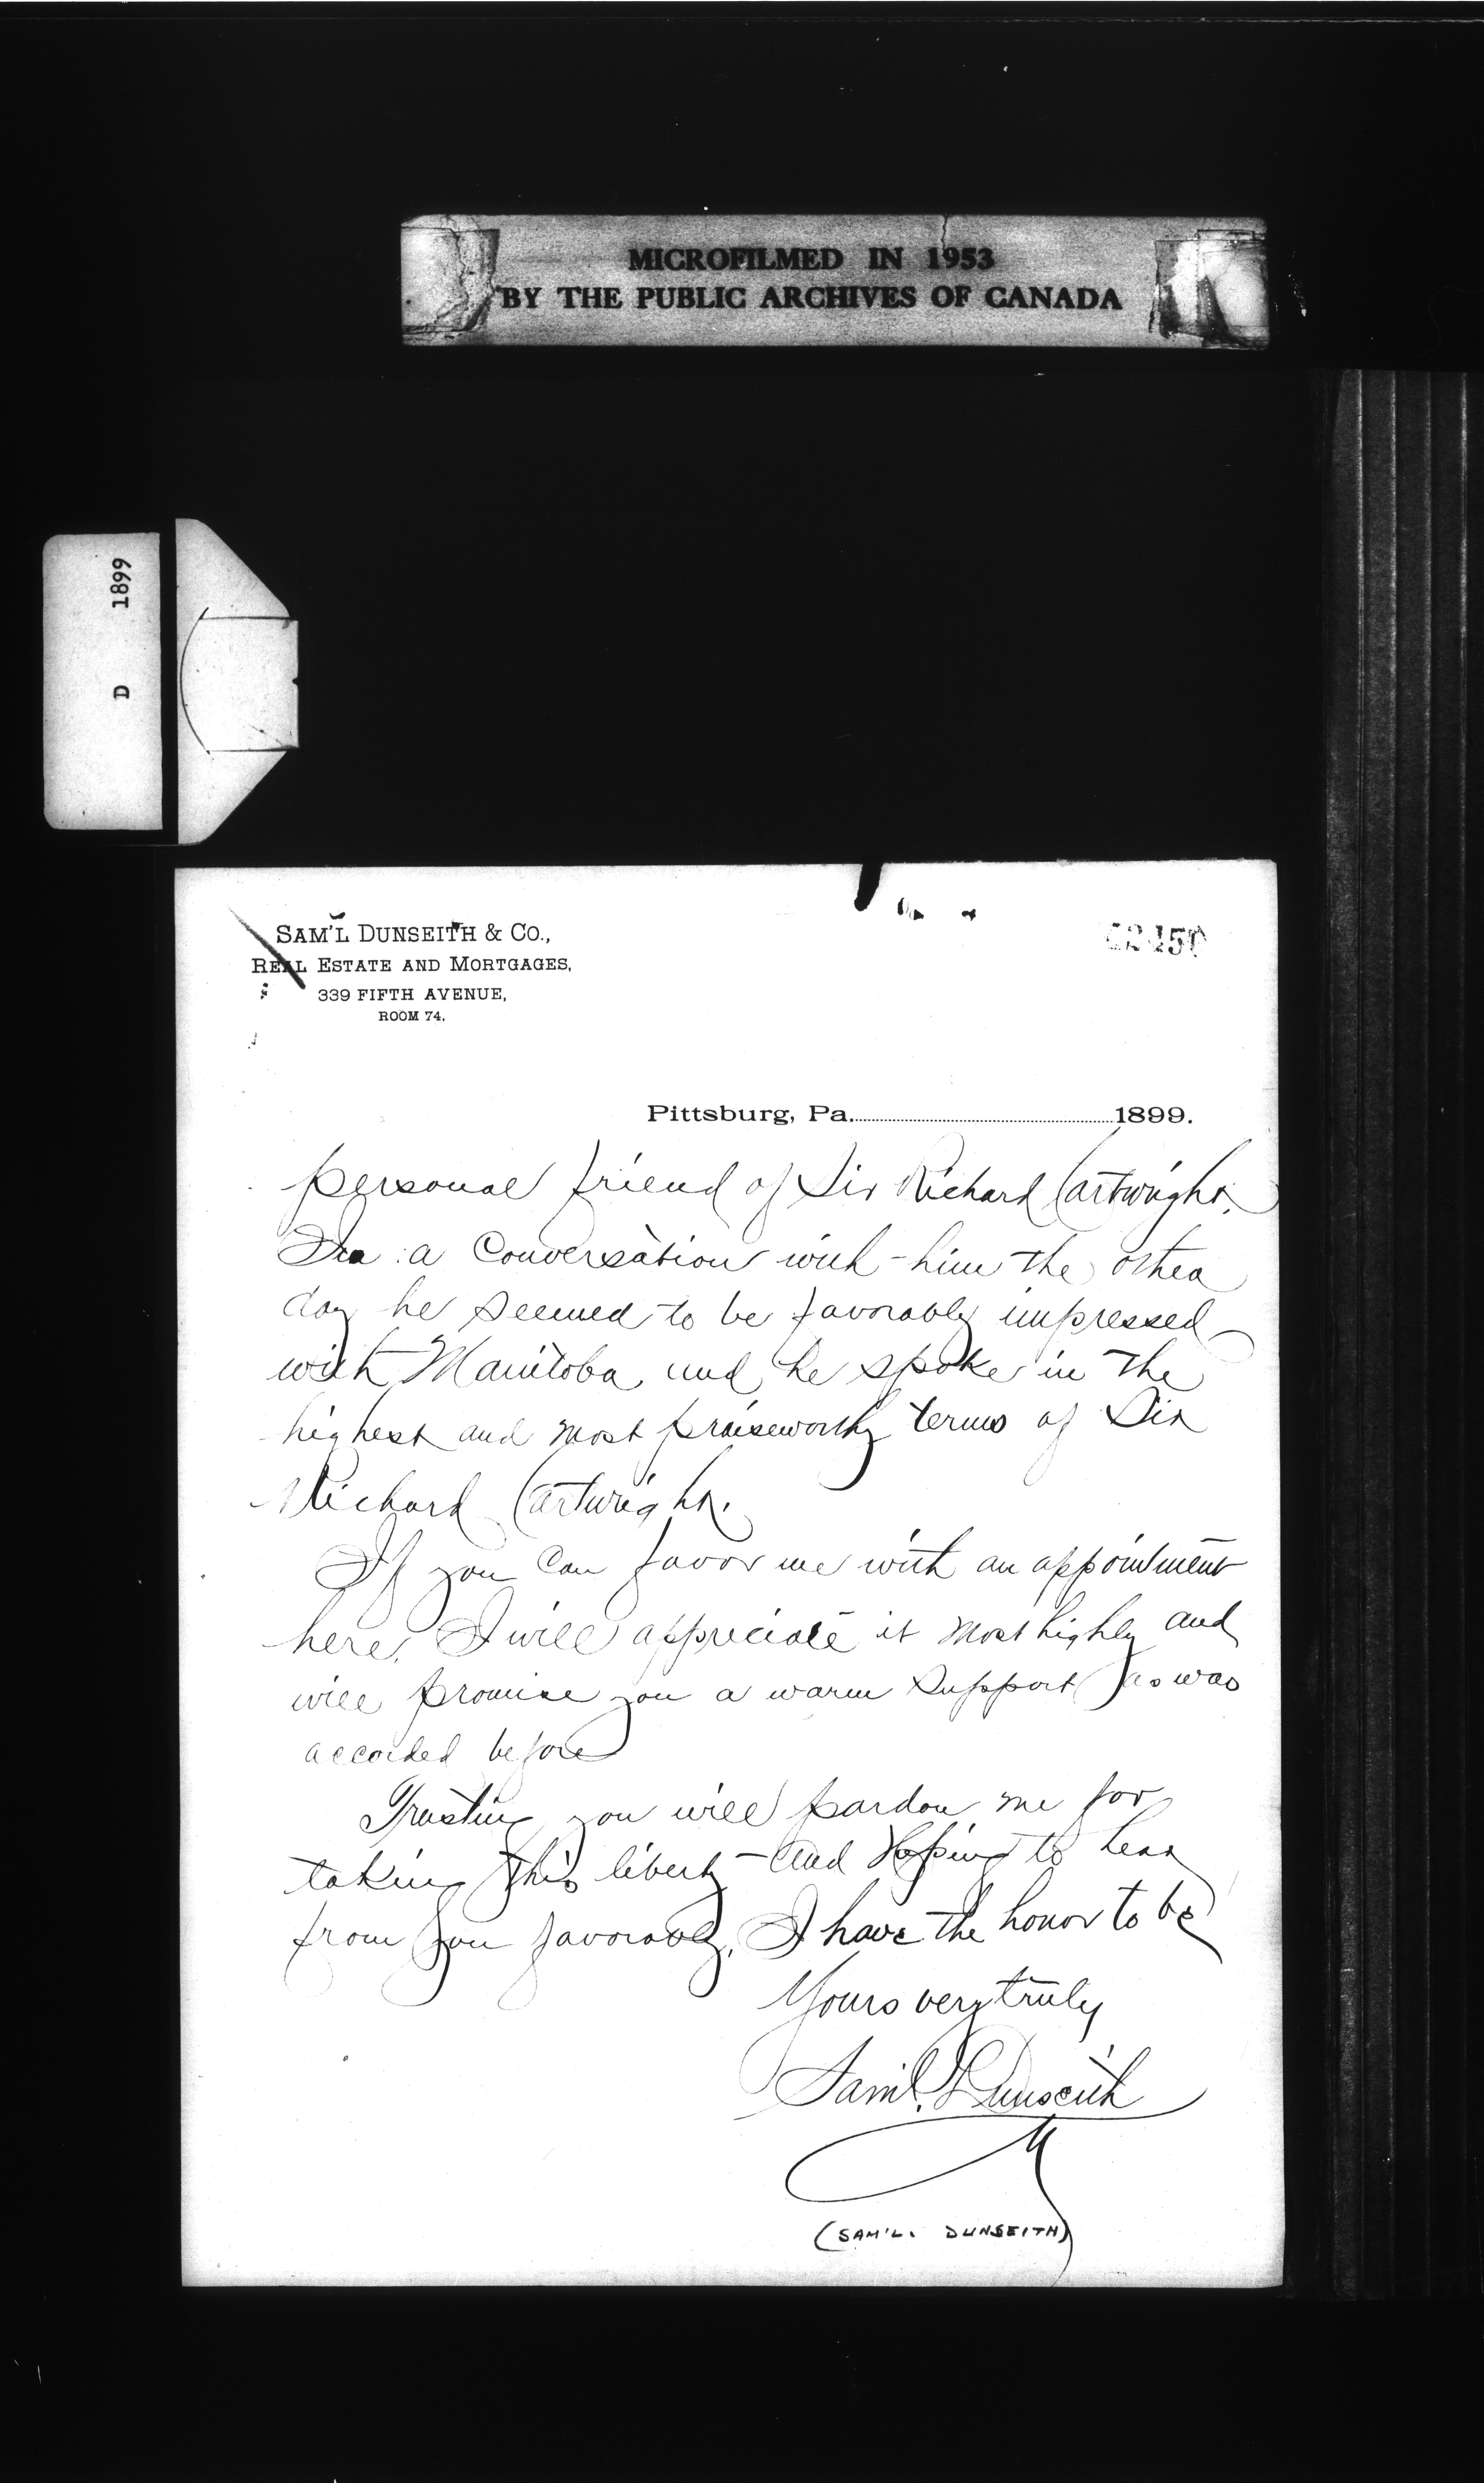 MICROFILMED IN 1953
BY THE PUBLIC ARCHIVES OF CANADA
D 1899
SAM'L DUNSEITH & CO.,
REAL ESTATE AND MORTGAGES,
339 FIFTH AVENUE,
ROOM 74.
Pittsburg, Pa. 1899.
personal friend of Sir Richard Cartwright.
In a Conversation with him the other
day he seemed to be favorably impressed
with Manitoba and he spoke in the
highest and most praiseworthy terms of Sir
Richard Cartwright.
If you can favor me with an appointment
here, I will appreciate it most highly and
will promise you a warm support as was
accorded before
Trusting you will pardon me for
taking this liberty - and Hoping to hear
from you favorably, I have the honor to be
Yours very truly
Saml. Dunseith
(SAM'L. DUNSEITH)